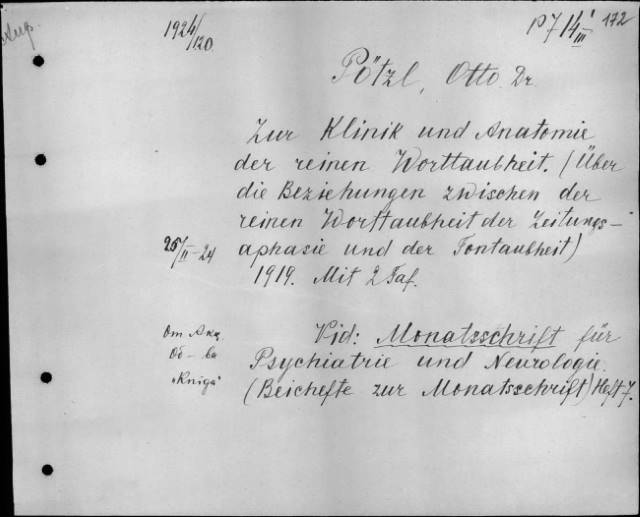 1924/120
P7 14/III 172
Pötzl, Otto Dr.
Zur Klinik und Anatomie
der reinen Worttaubheit. (Über
die Beziehungen zwischen der
reinen Worttaubheit der Zeitungs-
25/II-24 aphasie und der Tontaubheit)
1919. Mit 2 Taf.
Vid: Monatsschrift für
Psychiatrie und Neurologie.
(Beichefte zur Monatsschrift) Heft 7.
От Акц.
Об-ва
"Книга"